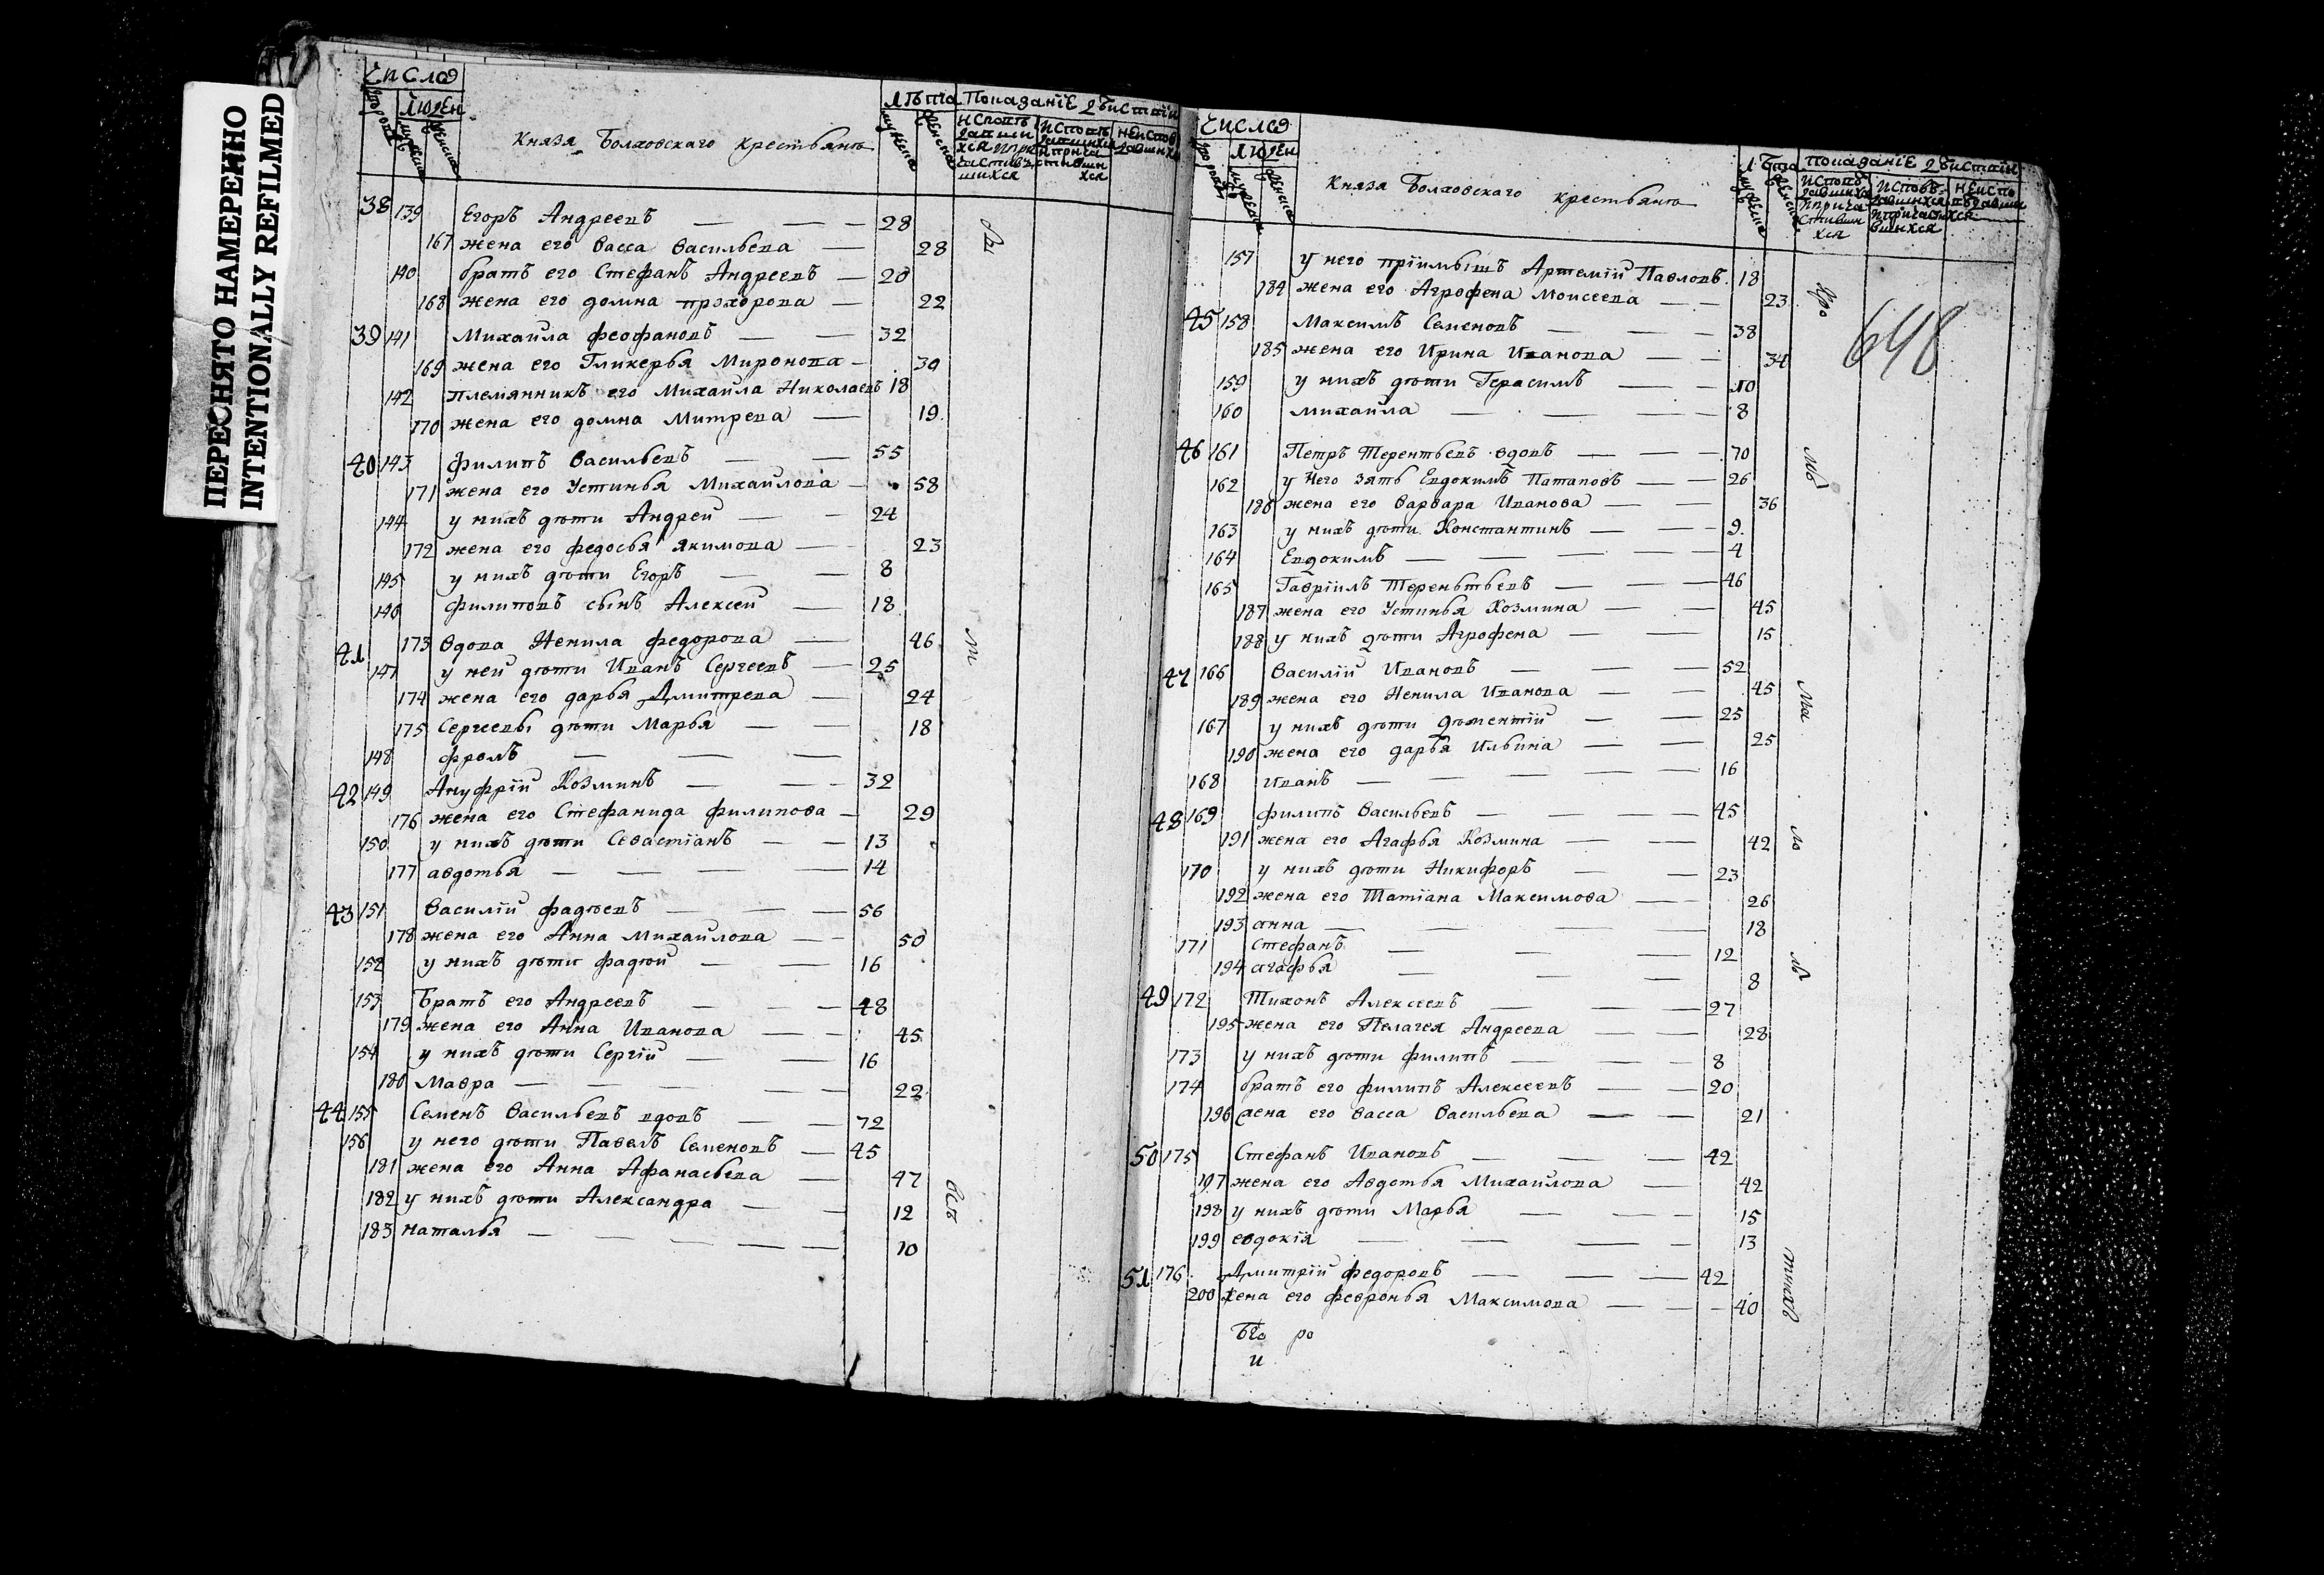 ПЕРЕСНЯТО НАМЕРЕННО
INTENTIONALLY REFILMED
Числа
Людей
Князя Болховскаго крестьянѣ
Лѣта Показаніе дѣйствій
38 139 Егоръ Андреевъ 28
167 жена его Васса Васильева 28
140 братъ его Стефанъ Андреевъ 20
168 жена его домна прохорова 22
39 141 Михайла феофановъ 32
169 жена его Гликерья Миронова 30
142 племянникъ его Михайла Николаевъ 18
170 жена его домна Митрева 19
40 143 филипъ Васильевъ 55
171 жена его Устинья Михайлова 58
144 у нихъ дѣти Андрей 24
172 жена его федосья якимова 23
145 у нихъ дѣти Егоръ 8
146 филиповъ сынъ Алексей 18
41 173 Вдова Ненила федорова 46
147 у ней дѣти Иванъ Сергеевъ 25
174 жена его дарья Дмитрева 24
175 Сергеевы дѣти Марья 18
148 фролъ
42 149 Ануфрій Козминъ 32
176 жена его Стефанида филипова 29
150 у нихъ дѣти Севастіанъ 13
177 авдотья 14
43 151 Василій фадѣевъ 56
178 жена его Анна Михайлова 50
152 у нихъ дѣти фадѣй 16
153 Братъ его Андреевъ 48
179 жена его Анна Иванова 45
154 у нихъ дѣти Сергій 16
180 Мавра 22
44 155 Семенъ Васильевъ вдовъ 72
156 у него дѣти Павелъ Семеновъ 45
181 жена его Анна Афанасьева 47
182 у нихъ дѣти Александра 12
183 наталья 10
Числа
Людей
Князя Болховскаго крестьянѣ
Лѣта показаніе дѣйствій
648
157 у него пріимышъ Артемій Павловъ 18
184 жена его Агрофена Моисеева 23
45 158 Максимъ Семеновъ 38
185 жена его Ирина Иванова 34
159 у нихъ дѣти Герасимъ 10
160 михайла 8
46 161 Петръ Терентьевъ вдовъ 70
162 у него зять Евдокимъ Патаповъ 26
186 жена его Варвара Иванова 36
163 у нихъ дѣти Константинъ 9
164 Евдокимъ 4
165 Гавріилъ Тереньтьевъ 46
187 жена его Устинья Козмина 45
188 у нихъ дѣти Агрофена 15
47 166 Василій Ивановъ 52
189 жена его Ненила Иванова 45
167 у нихъ дѣти Дѣментій 25
190 жена его дарья Ильина 25
168 иванъ 16
48 169 филипъ Васильевъ 45
191 жена его Агафья Козмина 42
170 у нихъ дѣти Никифоръ 23
192 жена его Татіана Максимова 26
193 анна 18
171 стефанъ 12
194 агафья 8
49 172 Тихонъ Алексеевъ 27
195 жена его Пелагея Андреева 28
173 у нихъ дѣти филипъ 8
174 братъ его филипъ Алексеевъ 20
196 жена его Васса Васильева 21
50 175 Стефанъ Ивановъ 42
197 жена его Авдотья Михайлова 42
198 у нихъ дѣти Марья 15
199 евдокія 13
51 176 Дмитрій федоровъ 42
200 жена его февронья Максимова 40